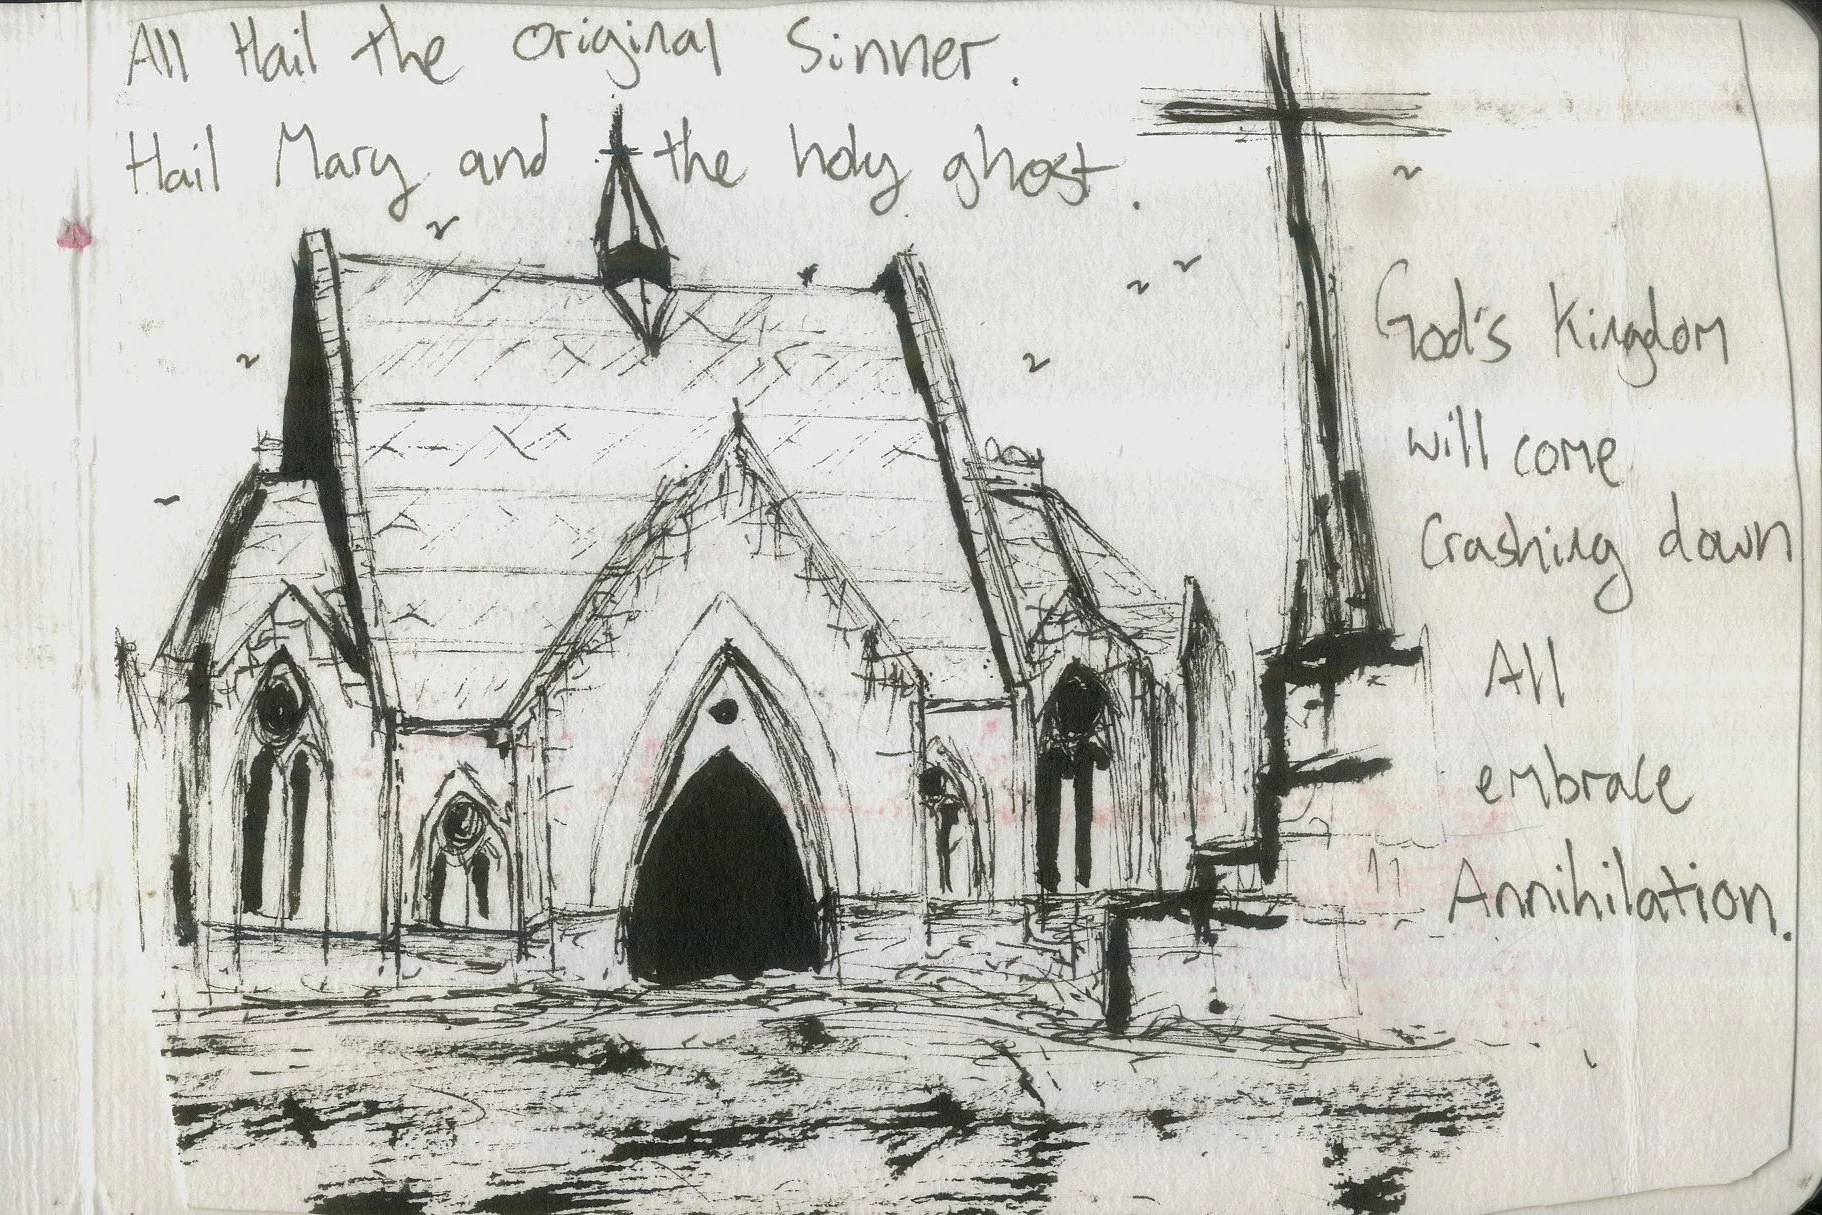 All Hail the Original Sinner.
Hail Mary and the holy ghost.
God's Kingdom
will come
Crashing down
All
embrace
Annihilation.